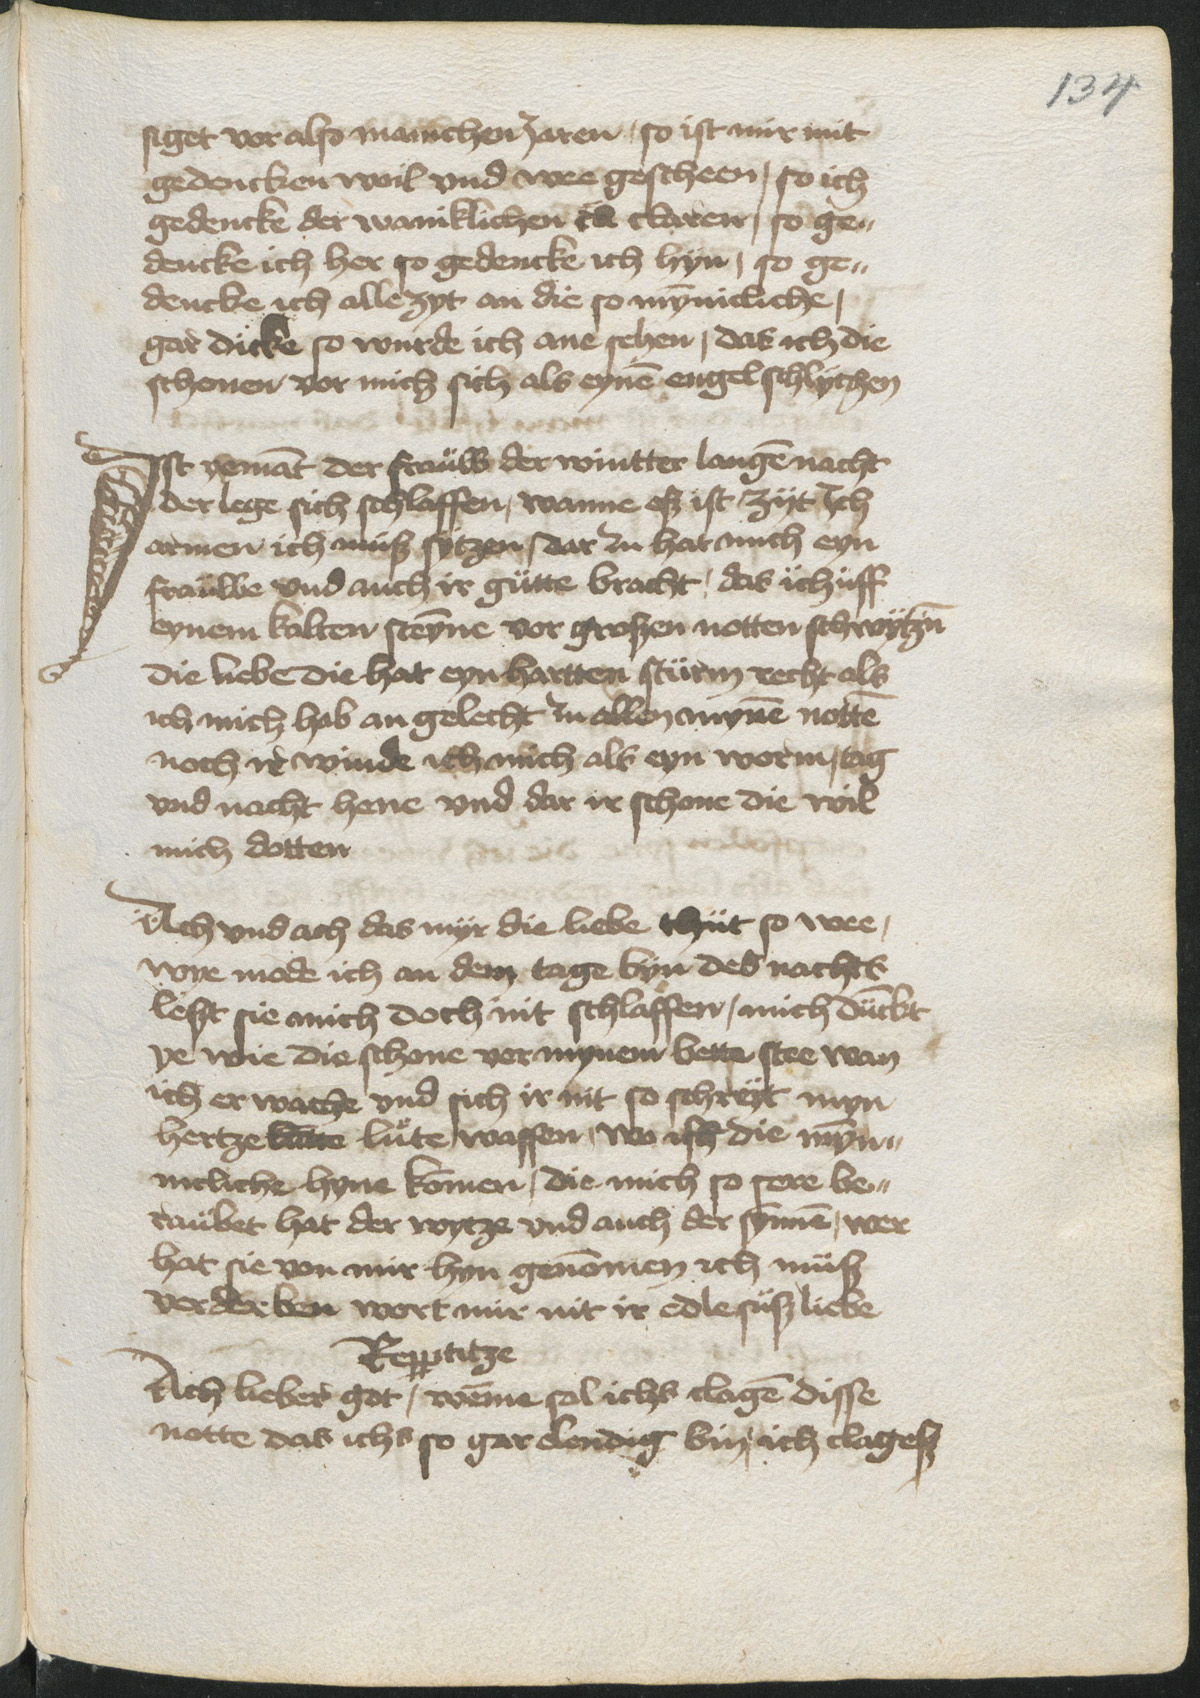 134
siget vor also manichen Jaren / so ist mir mit
gedencken woil vnd wee gescheen / so ich
gedencke der waniklichen claren / so ge„
dencke ich her so gedencke ich hyn / so ge„
dencke ich alle zyt an die so mȳnicliche /
gar dicke so wurde ich ane sehen / das ich die
schonen vor mich sich als eynē engel schlychen
Ist yemāt der fraüwͤ der wintter langē nacht
der lege sich schlaffen / wanne eß ist zyt Ich
armen ich müß sytzen / dar zu hat mich eyn
fraüwe vnd auch ir gütte bracht / das ich üff
eynem kalten steyne vor großen notten schwytzn̄
die liebe die hat eyn hartten stürm recht als
ich mich hab an gelecht In allen mynē nottē
noch ir winde ich mich als eyn worm / tag
vnd nacht hene vnd dar ir schone die wil
mich dotten
Ach vnd ach das myr die liebe thüt so wee /
wye mode ich an dem tage byn des nachts
leßt sie mich doch nit schlaffen / mich dückt
ye wie die schone vor mynem bette stee wan
ich er wache vnd sich ir nit so schreyt myn
hertze lüte waffen / wo ist die mȳn„
nicliche hyne komen / die mich so sere be„
raübet hat der wytze vnd auch der synnē / wer
hat sie von mir hyn genōmen ich müß
verderben wort mir nit ir edle süß liebe
Repptitze
Ach lieber got / weme sol ichs clagē disse
notte das ichs so gar elendig bin / ich clageß